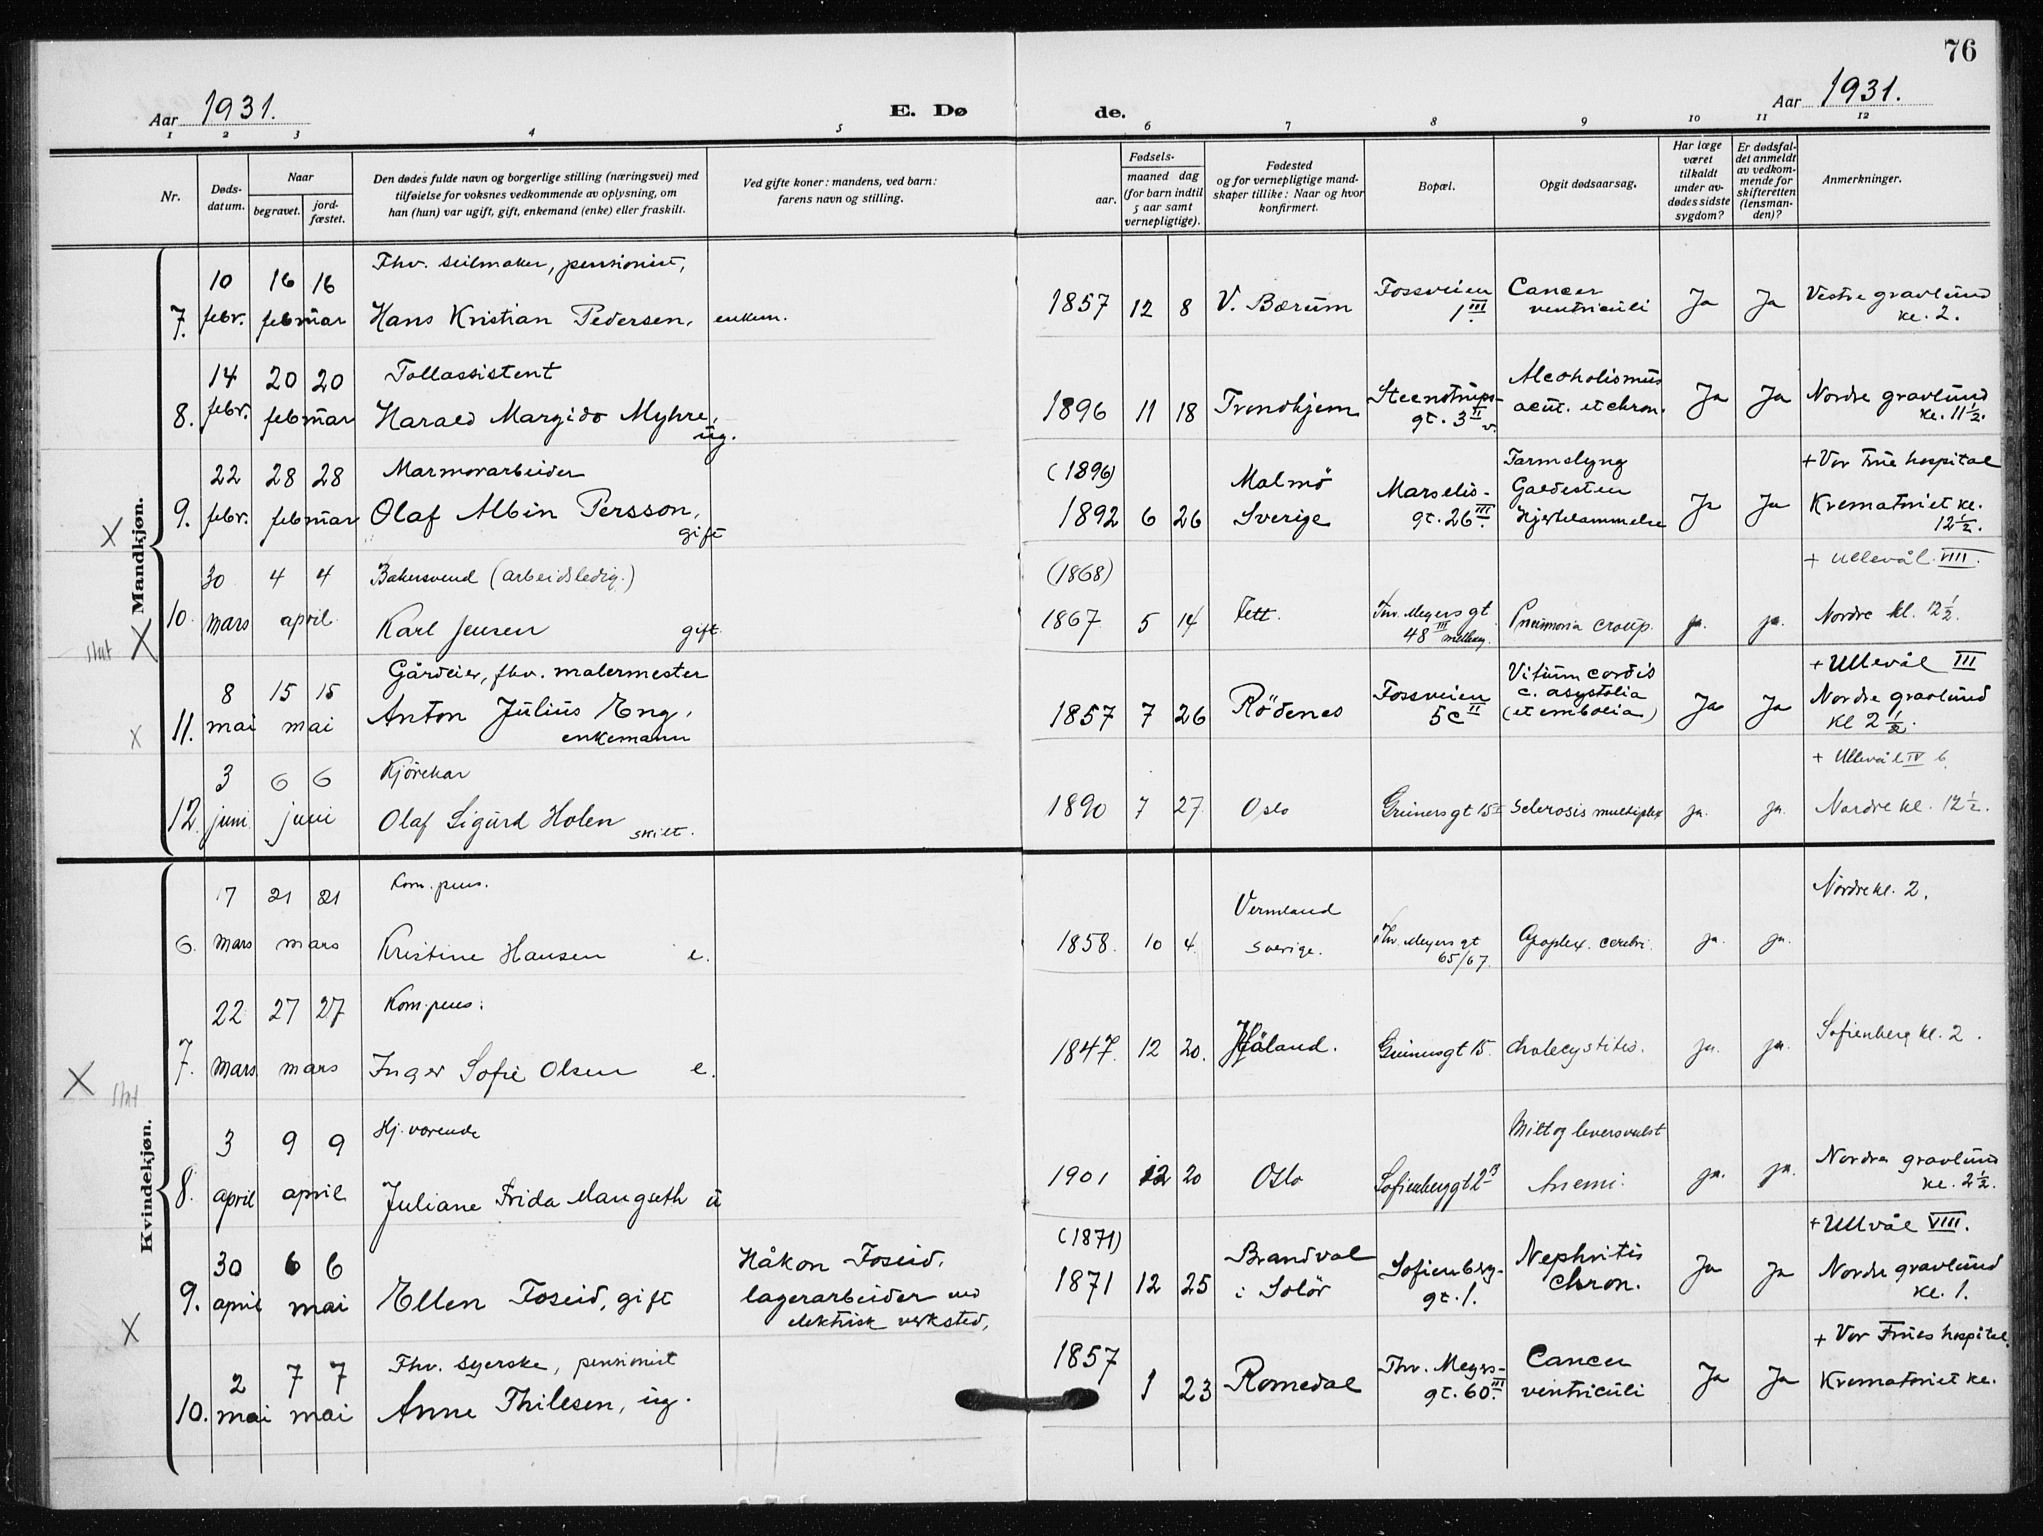 76
Aar 1931. E. Dø de. Aar 1931.
1 2 3 4 5 6 7 8 9 10 11 12
Nr. Døds-datum. Naar begravet. jord-fæstet. Den dødes fulde navn og borgerlige stilling (næringsvei) med tilføielse for voksnes vedkommende av oplysning, om han (hun) var ugift, gift, enkemand (enke) eller fraskilt. Ved gifte koner: mandens, ved barn: farens navn og stilling. Fødsels- aar. maaned dag (for barn indtil 5 aar samt vernepligtige). Fødested og for vernepligtige mandskaper tillike: Naar og hvor konfirmert. Bopæl. Opgit dødsaarsag. Har læge været tilkaldt under avdødes sidste sygdom? Er dødsfaldet anmeldt av vedkommende for skifteretten (lensmanden)? Anmerkninger.
Mandkjøn.
Fhv. seilmaker, pensionist,
7. 10 febr. 16 16 februar Hans Kristian Pedersen, enkem. 1857 12 8 V. Bærum Fossveien 1 III Cancer ventriculi Ja Ja Vestre gravlund kl. 2.
Tollassistent
8. 14 febr. 20 20 februar Harald Margido Myhre, ug. 1896 11 18 Trondhjem Steenstrups-gt. 3 II v. Alcoholismus acut. et chron. Ja Ja Nordre gravlund kl. 11½.
Marmorarbeider (1896) + Vor Frue hospital
X 9. 22 febr. 28 28 februar Olaf Albin Persson, gift 1892 6 26 Malmö Sverige Marselis-gt. 26 III Tarmslyng Galdesten Hjertelammelse Ja Ja Krematoriet kl. 12½.
Bakersvend (arbeidsledig.) (1868) + Ullevål VIII.
X 10. 30 mars 4 4 april Karl Jensen gift 1867 5 14 Fett. Thv. Meyers gt 48 III mellem. Pneumonia croup. ja. ja. Nordre kl. 12½.
Gårdeier, fhv. malermester + Ullevål III
x 11. 8 mai 15 15 mai Anton Julius Eng, enkemann 1857 7 26 Rödenes Fossveien 5c II Vitium cordis c. asystolia (et embolia) Ja Ja Nordre gravlund kl 2½.
Kjörekar + Ullevål IV 6.
12. 3 juni 6 6 juni Olaf Sigurd Holen skilt. 1890 7 27. Oslo Grünersgt 15 I Sclerosis multiplex ja. ja. Nordre kl. 12½.
Kvindekjøn.
Kom. pens.
6. 17 mars 21 21 mars Kristine Hansen e. 1858. 10 4. Vermland Sverige. Thv. Meyers gt 65/67. Apoplex. cerebri. ja. ja. Nordre kl. 2.
Kom. pens.
X 7. 22 mars 27 27 mars Inger Sofie Olsen e. 1847. 12 20. Håland. Grünersgt 15. Cholecystitis. ja. ja. Sofienberg kl. 2.
Hj. værende
8. 3 april 9 9 april Juliane Frida Maugseth u 1901 12 20 Oslo Sofienberggt 2 B Milt og leversvulst Anemi. ja. ja. Nordre gravlund kl. 2½.
(1871) + Ullvål VIII.
9. 30 april 6 6 mai Ellen Foseid, gift Håkon Foseid, lagerarbeider ved elektrisk verksted, 1871 12 25 Brandval i Solör Sofienberg-gt. 1. Nephritis chron. Ja Ja Nordre gravlund kl. 1.
Fhv. syerske, pensionist + Vor Frues hospital.
X 10. 2 mai 7 7 mai Anne Thilesen, ug. 1857 1 23 Romedal Thv. Meyers-gt. 60 III Cancer ventriculi Ja Ja Krematoriet kl.